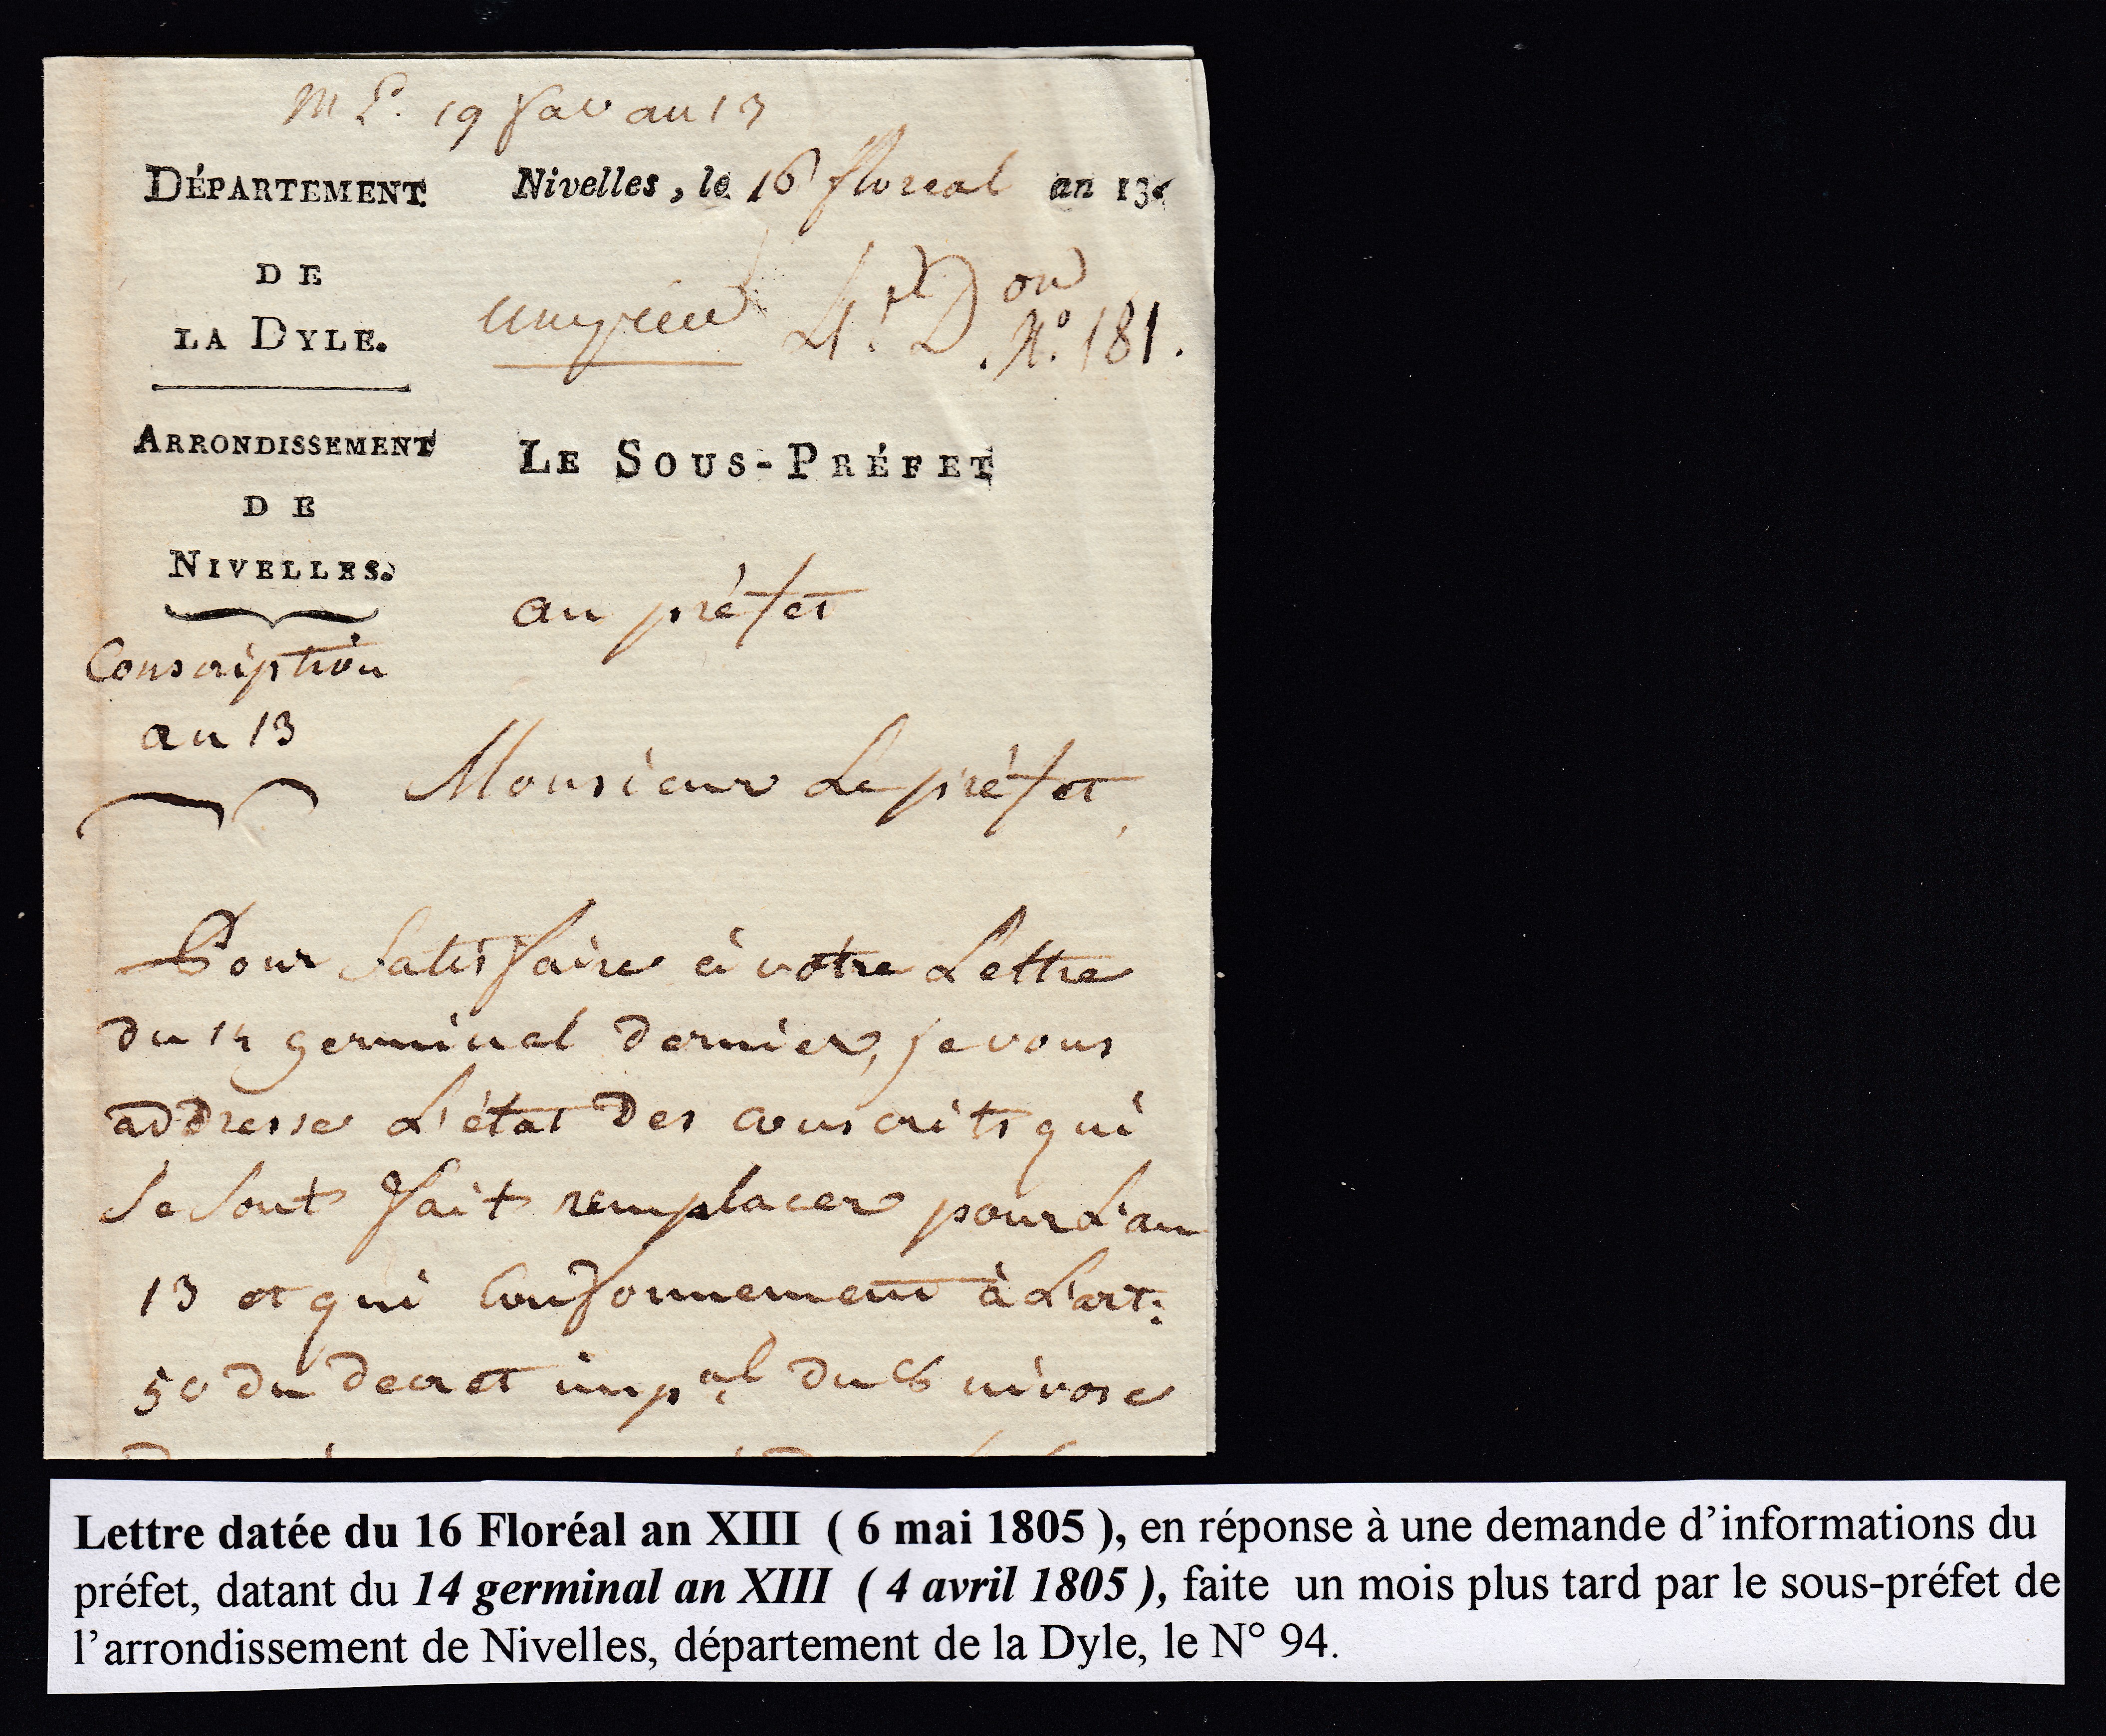 19 an 13
DÉPARTEMENT
DE
LA DYLE.
Nivelles, le 16 floreal an 13.
4. Don
N.o 181.
ARRONDISSEMENT
DE
NIVELLES.
LE SOUS-PRÉFET
au préfet
Conscription
an 13
Monsieur Le préfet,
Pour Satisfaire à votre Lettre
du 14 germinal dernier, je vous
addresse L'état des conscrits qui
Se Sont fait remplacer pour L'an
13 et qui Conformement à L'art:
50 du decret impal du 8 nivose
Lettre datée du 16 Floréal an XIII ( 6 mai 1805 ), en réponse à une demande d'informations du
préfet, datant du 14 germinal an XIII ( 4 avril 1805 ), faite un mois plus tard par le sous-préfet de
l'arrondissement de Nivelles, département de la Dyle, le N° 94.